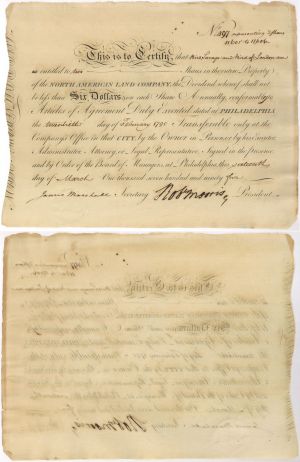 No. representing
This is to Certify, that
is entitled to two Shares in the entire Property
of the NORTH AMERICAN LAND COMPANY, the Dividend whereof shall not
be less than Six Dollars on each Share Annually, conformably to
Articles of Agreement Duly Executed, dated at PHILADELPHIA
the twentieth day of February 1795 Transferable only at the
Company's Office in that CITY, by the Owner in Person or by his Executor
Administrator, Attorney or Legal Representative. Signed in the presence
and by Order of the Board of Managers, at Philadelphia, this sixteenth
day of March One thousand seven hundred and ninety five
James Marshall Secretary Rob Morris President